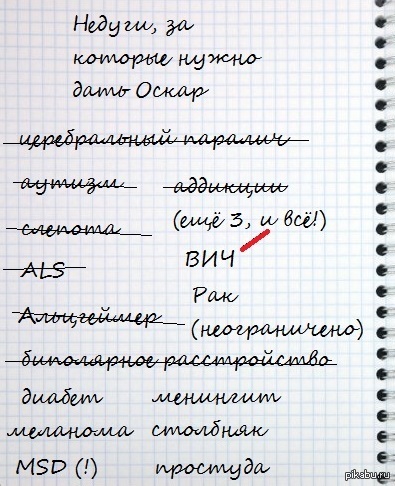 Недуги, за
которые нужно
дать Оскар
церебральный паралич
аутизм аддикции
слепота (ещё 3, и всё!)
ALS ВИЧ
Рак
Альцгеймер (неограничено)
биполярное расстройство
диабет менингит
меланома столбняк
MSD (!) простуда
pikabu.ru